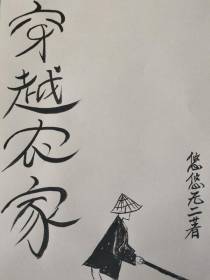 穿越农家
悠悠无二著